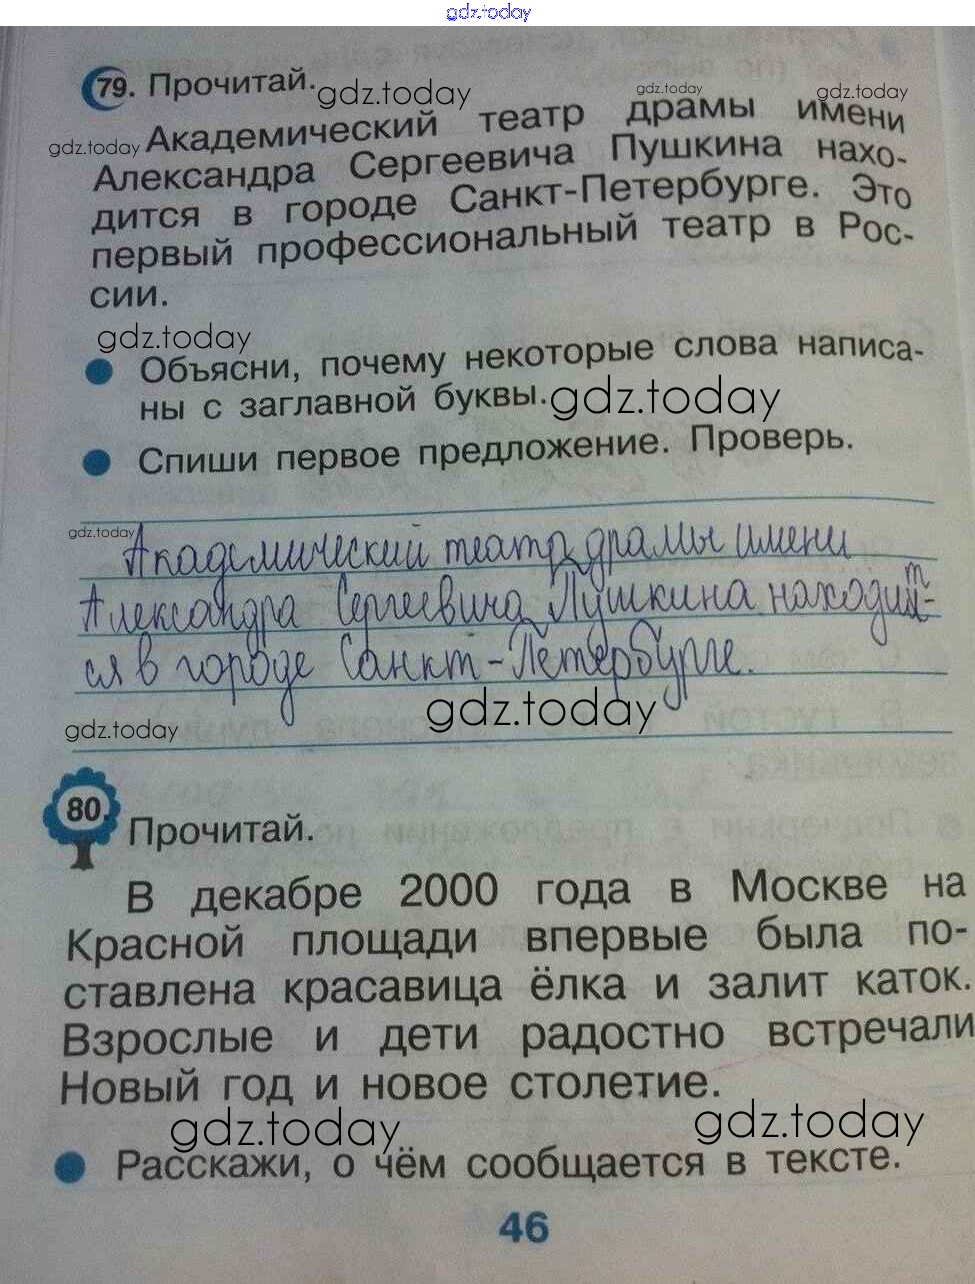 gdz.today
79. Прочитай.
gdz.today
gdz.today
gdz.today
gdz.today
Академический театр драмы имени
Александра Сергеевича Пушкина нахо-
дится в городе Санкт-Петербурге. Это
первый профессиональный театр в Рос-
сии.
gdz.today
Объясни, почему некоторые слова написа-
ны с заглавной буквы.
gdz.today
Спиши первое предложение. Проверь.
gdz.today
Академический театр драмы имени
Александра Сергеевича Пушкина находит-
ся в городе Санкт-Петербурге.
gdz.today
gdz.today
80. Прочитай.
В декабре 2000 года в Москве на
Красной площади впервые была по-
ставлена красавица ёлка и залит каток.
Взрослые и дети радостно встречали
Новый год и новое столетие.
gdz.today
gdz.today
Расскажи, о чём сообщается в тексте.
46